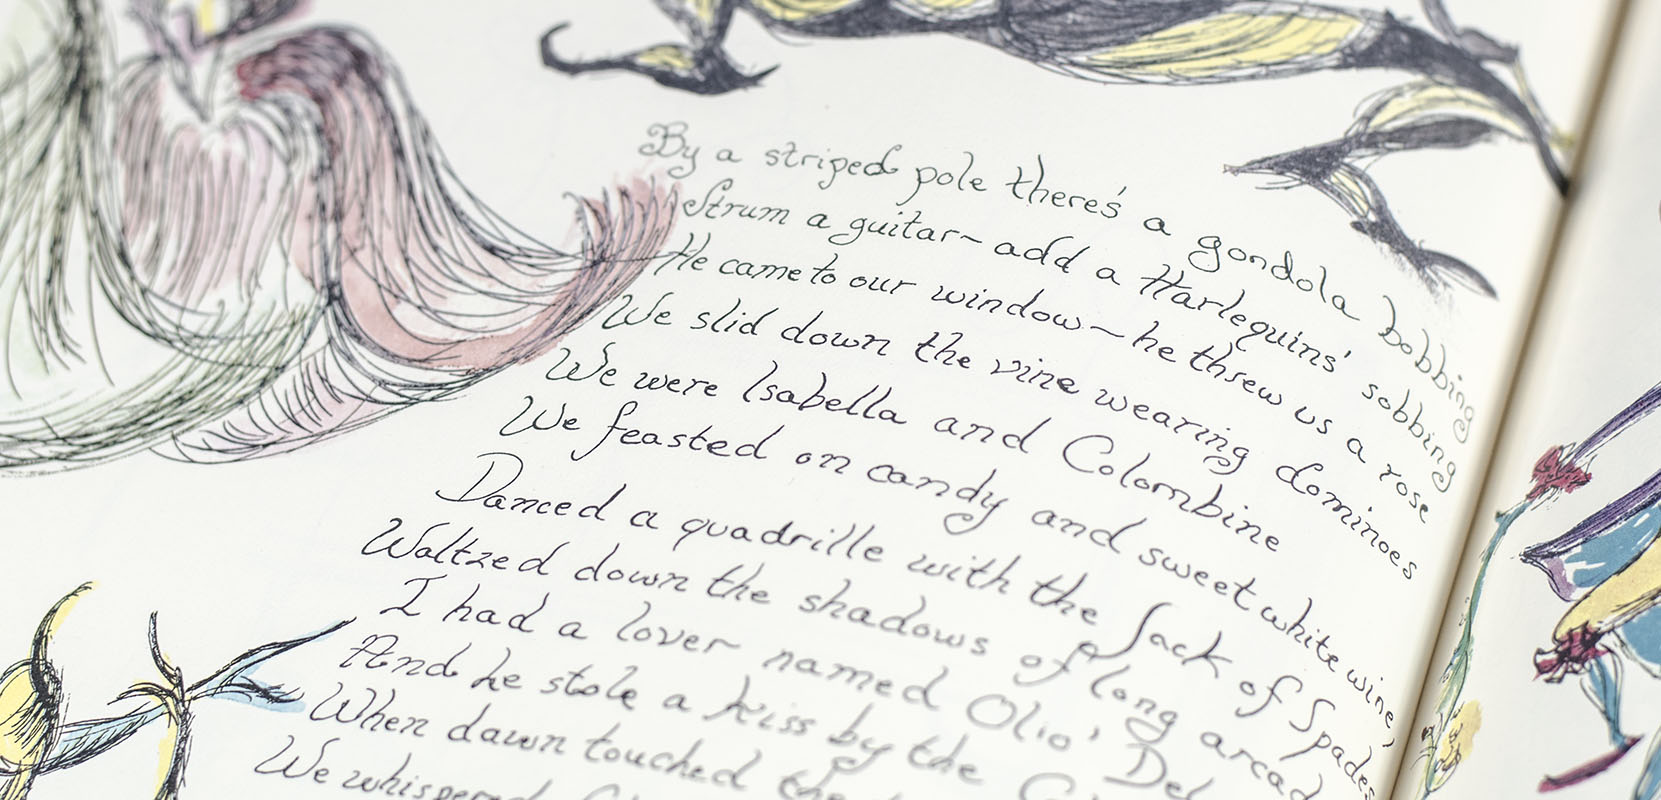 By a striped pole there's a gondola bobbing
Strum a guitar~ add a Harlequins' sobbing
He came to our window~ he threw us a rose
We slid down the vine wearing dominoes
We were Isabella and Colombine
We feasted on candy and sweet white wine,
Danced a quadrille with the Jack of Spades,
Waltzed down the shadows of long
I had a lover named Olio'
And he stole a kiss by the
When dawn touched the
We whispered